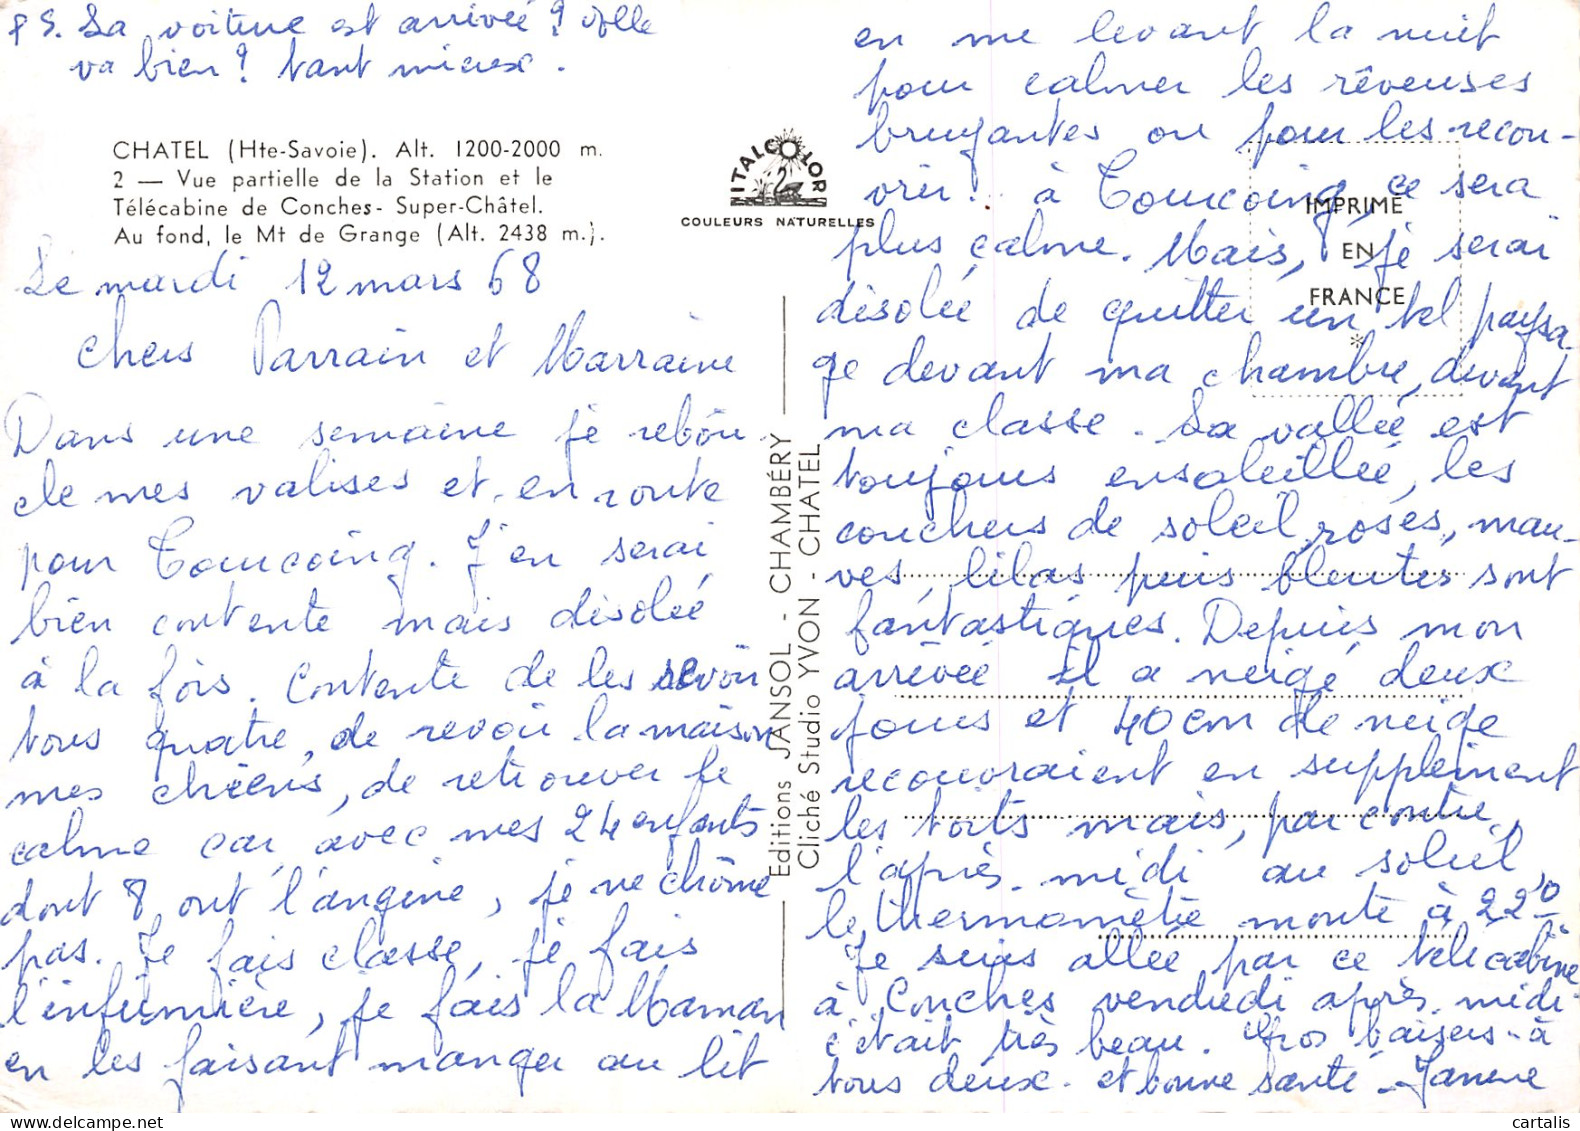 PS. La voiture est arrivée ? elle
va bien ? tant mieux.
CHATEL (Hte-Savoie). Alt. 1200-2000 m.
2 — Vue partielle de la Station et le
Télécabine de Conches- Super-Châtel.
Au fond, le Mt de Grange (Alt. 2438 m.).
ITALCOLOR
COULEURS NATURELLES
IMPRIMÉ
EN
FRANCE
*
Le mardi 12 mars 68
Chers Parrain et Marraine
Dans une semaine je rebou-
cle mes valises et en route
pour Tourcoing. J'en serai
bien contente mais désolée
à la fois. Contente de les revoir
tous quatre, de revoir la maison
mes chéris, de retrouver le
calme car avec mes 24 enfants
dont 8 ont l'angine, je ne chôme
pas. Je fais classe, je fais
l'infirmière, je fais la Maman
en les faisant manger au lit
Editions JANSOL - CHAMBÉRY
Cliché Studio YVON - CHATEL
en me levant la nuit
pour calmer les rêveuses
bruyantes ou pour les recou-
vrir ! à Tourcoing, ce sera
plus calme. Mais, je serai
désolée de quitter un tel paysa-
ge devant ma chambre, devant
ma classe. La vallée est
toujours ensoleillée, les
couchers de soleil roses, mau-
ves, lilas puis bleutés sont
fantastiques. Depuis mon
arrivée il a neigé deux
jours et 40 cm de neige
recouvraient en supplément
les toits mais, par contre,
l'après-midi au soleil,
le thermomètre monte à 22°
Je suis allée par ce télécabine
à Conches vendredi après-midi
c'était très beau. Gros baisers à
tous deux. et bonne santé - Janine
cartalis